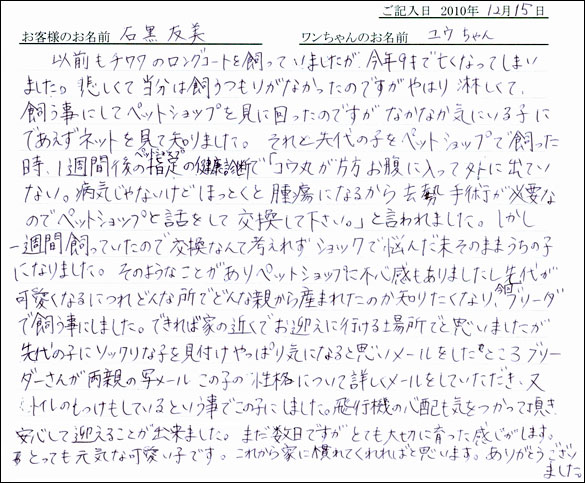 ご記入日 2010年 12月15日
お客様のお名前 石黒 友美 ワンちゃんのお名前 ユウちゃん
以前もチワワのロングコートを飼っていましたが、今年9才で亡くなってしまい
ました。悲しくて当分は飼うつもりがなかったのですがやはり淋しくて、
飼う事にしてペットショップを見に回ったのですがなかなか気にいる子に
であえずネットを見て知りました。それと先代の子をペットショップで飼った
時、1週間後のペットショップ指定の健康診断で「コウ丸が片方お腹に入って外に出てい
ない。病気じゃないけどほっとくと腫瘍になるから去勢手術が必要な
のでペットショップと話をして交換して下さい。」と言われました。しかし
一週間飼っていたので交換なんて考えれずショックで悩んだ末そのままうちの子
になりました。そのようなことがありペットショップに不心感もありましたし先代が
可愛くなるにつれどんな所でどんな親から産まれたのか知りたくなり、今回ブリーダー
で飼う事にしました。できれば家の近くでお迎えに行ける場所でと思いましたが
先代の子にソックリな子を見付けやっぱり気になると思いメールをしたところブリー
ダーさんが両親の写メール この子の性格について詳しくメールをしていただき、又
トイレのしつけもしているという事でこの子にしました。飛行機の心配も気をつかって頂き
安心して迎えることが出来ました。まだ数日ですがとても大切に育った感じがします。
とっても元気な可愛い子です。これから家に慣れてくれればと思います。ありがとうござい
ました。